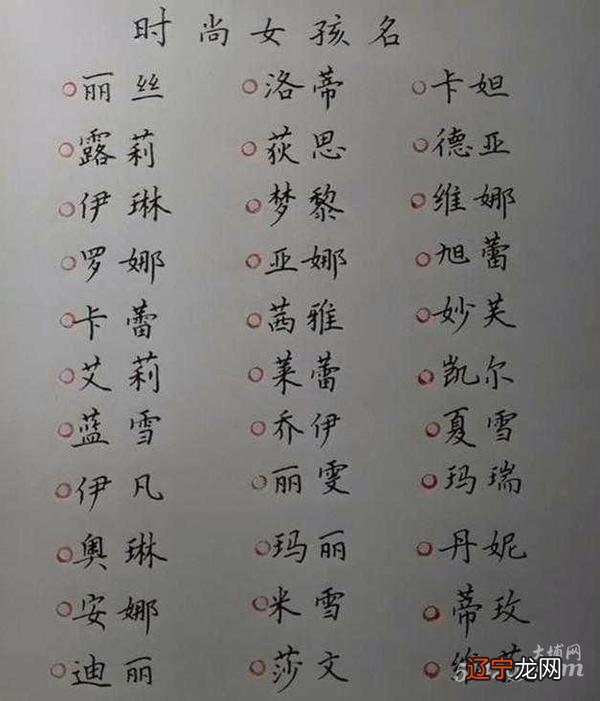 时尚女孩名
丽丝 洛蒂 卡妲
露莉 荻思 德亚
伊琳 梦黎 维娜
罗娜 亚娜 旭蕾
卡蕾 茜雅 妙芙
艾莉 莱蕾 凯尔
蓝雪 乔伊 夏雪
伊凡 丽雯 玛瑞
奥琳 玛丽 丹妮
安娜 米雪 蒂玫
大埔网
迪丽 莎文 维
辽宁龙网